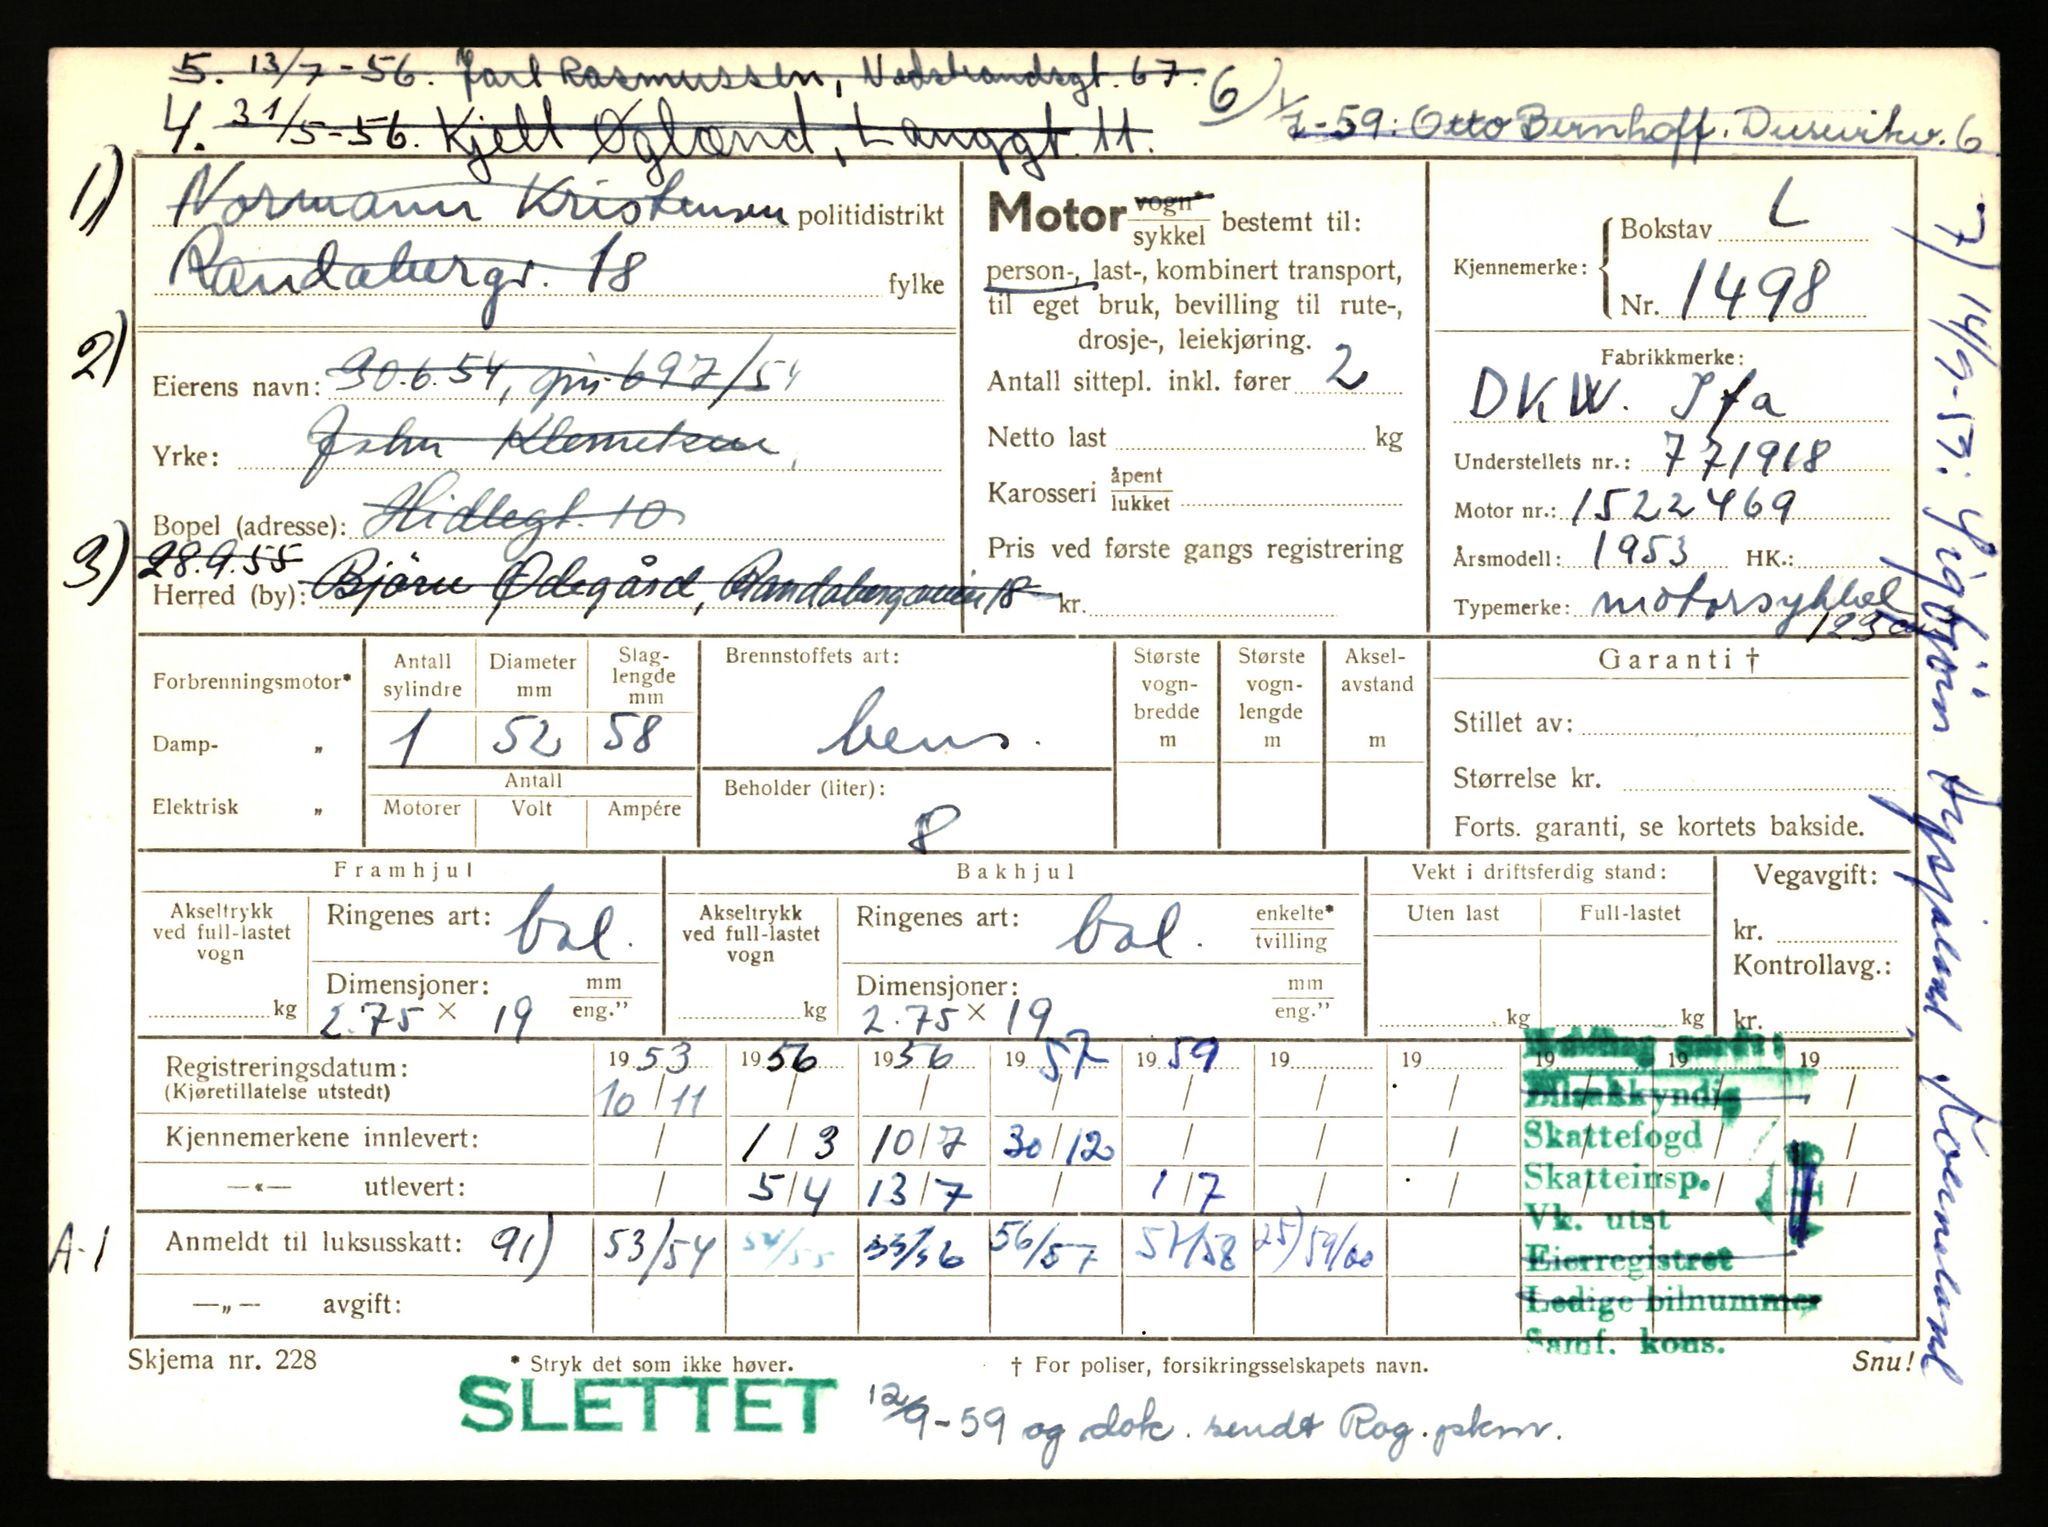 5. 13/7-56. Jarl Rasmussen, Nedstrandsgt. 67.
4. 31/5-56. Kjell Øglænd, Langgt. 11.
6) 1/7-59: Otto Bernhoff. Dusevikv. 6
1) Normann Kristensen politidistrikt
Randabergv. 18 fylke
2)
Eierens navn: 30.6.54, 697/54
Yrke: John Klemetsen,
Bopel (adresse): Hidlegt. 10
3) 28.9.55
Herred (by): Bjørn Ødegård, Randabergveien 18
Motor vogn*
sykkel bestemt til:
person-, last-, kombinert transport,
til eget bruk, bevilling til rute-,
drosje-, leiekjøring.
Antall sittepl. inkl. fører 2
Netto last kg
Karosseri åpent
lukket
Pris ved første gangs registrering
kr.
Kjennemerke: Bokstav L
Nr. 1498
Fabrikkmerke:
DKW. Ifa
Understellets nr.: 771918
Motor nr.: 1522469
Årsmodell: 1953 HK.:
Typemerke: motorsykkel
7) 14/9-59: Sigbjørn Kverneland
Forbrenningsmotor*
Damp- „
Elektrisk „
Antall sylindre 1
Diameter mm 52
Slag-lengde mm 58
Antall
Motorer Volt Ampére
Brennstoffets art:
bens.
Beholder (liter):
8
Største vogn-bredde m
Største vogn-lengde m
Aksel-avstand m
Garanti †
Stillet av:
Størrelse kr.
Forts. garanti, se kortets bakside.
Framhjul
Akseltrykk ved full-lastet vogn
kg
Ringenes art: bal.
Dimensjoner: mm
eng."
2.75 × 19
Bakhjul
Akseltrykk ved full-lastet vogn
kg
Ringenes art: bal. enkelte*
tvilling
Dimensjoner: mm
eng."
2.75 × 19
Vekt i driftsferdig stand:
Uten last Full-lastet
kg kg
Vegavgift:
kr.
Kontrollavg.:
kr.
Registreringsdatum: 1953 1956 1956 1957 1959 19 19 19 19
(Kjøretillatelse utstedt) 10/11 / / / / / / / / /
Kjennemerkene innlevert: / 1/3 10/7 30/12 / / / / / /
—«— utlevert: / 5/4 13/7 / 1/7 / / / / /
A-1 Anmeldt til luksusskatt: 91) 53/54 54/55 55/56 56/57 57/58 25) 59/60
—„— avgift:
Melding sendt:
Bilsakkyndig
Skattefogd
Skatteinsp.
Vk. utst
Eierregistret
Ledige bilnummer
Samf. kons.
Skjema nr. 228 * Stryk det som ikke høver. † For poliser, forsikringsselskapets navn. Snu!
SLETTET 12/9-59 og dok. sendt Rog. pskm.